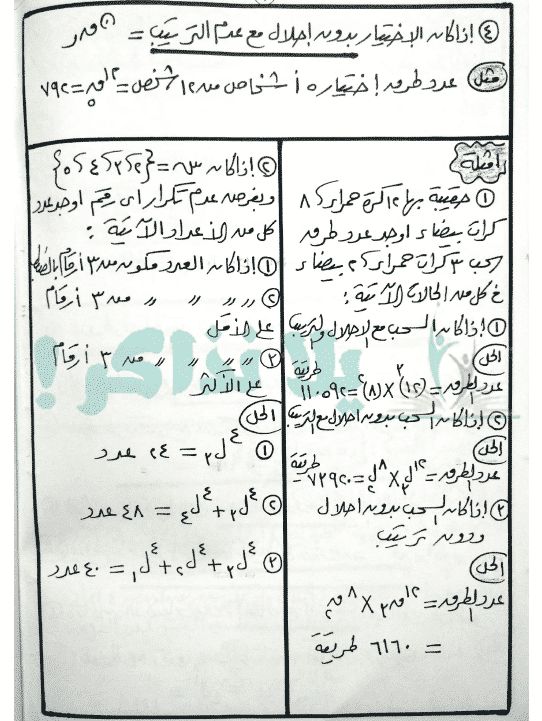 ④ إذا كان الإختيار بدون إحلال مع عدم الترتيب = ⁿقر
مثل عدد طرق إختيار ٥ أشخاص من ١٢ شخص = ¹²ق₅ = ٧٩٢
أمثلة
① حقيبة بها ١٢ كرة حمراء، ٨
كرات بيضاء أوجد عدد طرق
سحب ٣ كرات حمراء، ٢ بيضاء
في كل من الحالات الآتية :
① إذا كان السحب مع الإحلال والترتيب
الحل
عدد الطرق = (١٢)³ × (٨)² = ١١٠٥٩٢ طريقة
② إذا كان السحب بدون إحلال مع الترتيب
الحل
عدد الطرق = ¹²ل₃ × ⁸ل₂ = ٧٣٩٢٠ طريقة
③ إذا كان السحب بدون إحلال
ودون ترتيب
الحل
عدد الطرق = ¹²ق₃ × ⁸ق₂
= ٦١٦٠ طريقة
② إذا كان س = {٢، ٣، ٤، ٥}
وبفرض عدم تكرار أى رقم أوجد عدد
كل من الأعداد الآتية :
① إذا كان العدد مكون من ٣ أرقام بالضبط
② // // // // من ٣ أرقام
على الأقل
③ // // // // من ٣ أرقام
على الأكثر
الحل
① ⁴ل₃ = ٢٤ عدد
② ⁴ل₃ + ⁴ل₄ = ٤٨ عدد
③ ⁴ل₃ + ⁴ل₂ + ⁴ل₁ = ٤٠ عدد
يلا نذاكر!